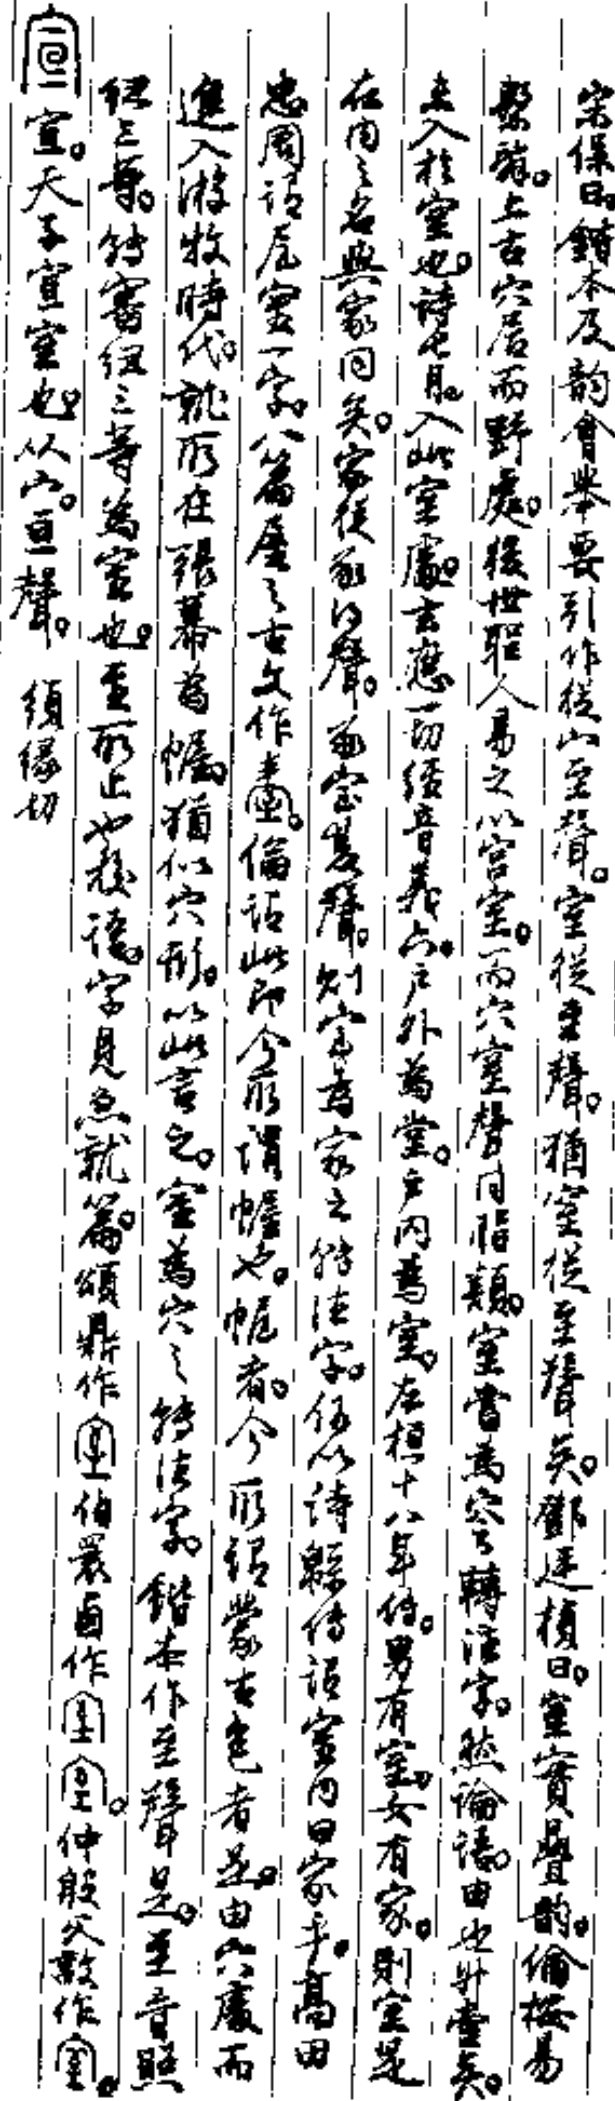 宋保曰。鍇本及韵會舉要引作從宀至聲。室從至聲。猶室從至聲矣。鄧廷楨曰。室實疊韵。倫按易
繫辭。上古穴居而野處。後世聖人易之以宮室。而穴室聲同脂類。室當為穴之轉注字。然論語。由也升堂矣。
未入於室也。詩七月。入此室處。玄應一切經音義六。戶外為堂。戶內為室。左桓十八年傳。男有室。女有家。則室是
在內之名與家同矣。家從豭得聲。
忠周謂屋室一字。八篇屋之古文作臺。倫謂此即今所謂幄也。幄者。今所謂蒙古包者是。由穴處而
進入游牧時代。就所在張幕為幄。猶似穴形。以此言之。室為穴之轉注字。鍇本作至聲是。至音照
紐三等。轉審紐三等為室也。至所止也校語。字見急就篇。頌鼎作 伯睘卣作 仲殷父敦作
宣 宣。天子宣室也。从宀。亘聲。 須緣切